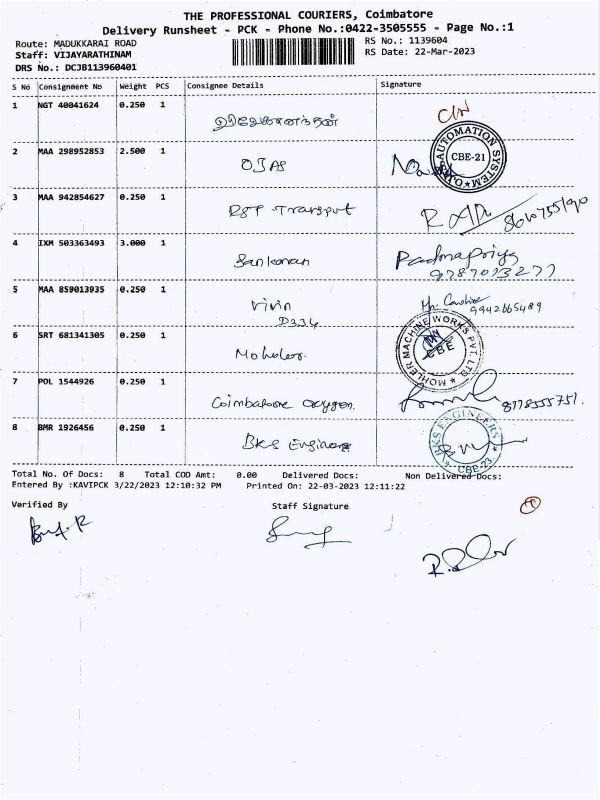 THE PROFESSIONAL COURIERS, Coimbatore
Delivery Runsheet - PCK - Phone No.:0422-3505555 - Page No.:1
Route: MADUKKARAI ROAD
RS No.: 1139604
Staff: VIJAYARATHINAM
RS Date: 22-Mar-2023
DRS No.: DCJB113960401
S No Consignment No Weight PCS Consignee Details Signature
1 NGT 40041624 0.250 1
2 MAA 298952853 2.500 1 OJAS
AUTOMATION SYSTEM
CBE-21
3 MAA 942854627 0.250 1 Transport
4 IXM 503363493 3.000 1 Sankaran Padmapriya
9787013277
5 MAA 859013935 0.250 1 Vivin
D334
9942665489
6 SRT 681341305 0.250 1 Mohler
MOHLER MACHINE WORKS PVT. LTD
CBE
7 POL 1544926 0.250 1 Coimbatore oxygen 8778555751.
8 BMR 1926456 0.250 1 BKS Engineers
BKS ENGINEERS
CBE-23
Total No. Of Docs: 8 Total COD Amt: 0.00 Delivered Docs: Non Delivered Docs:
Entered By :KAVIPCK 3/22/2023 12:10:32 PM Printed On: 22-03-2023 12:11:22
Verified By Staff Signature